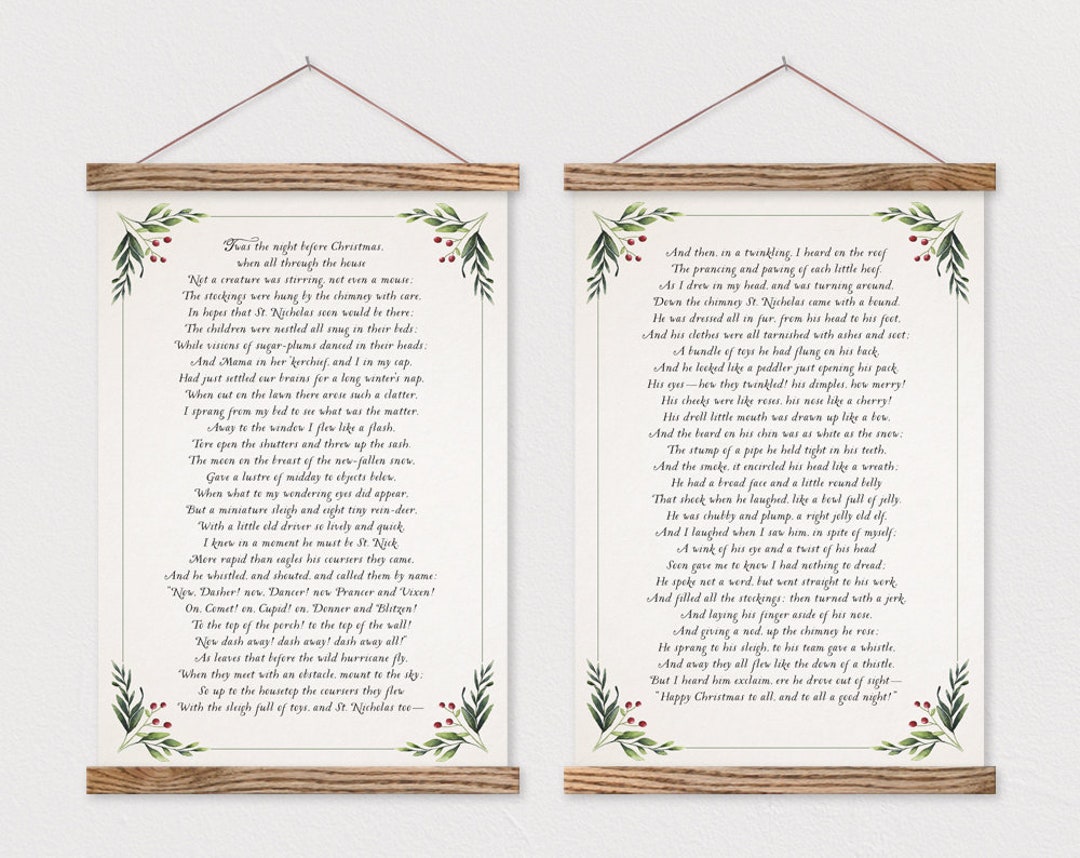 'Twas the night before Christmas,
when all through the house
Not a creature was stirring, not even a mouse;
The stockings were hung by the chimney with care,
In hopes that St. Nicholas soon would be there;
The children were nestled all snug in their beds;
While visions of sugar-plums danced in their heads;
And Mama in her 'kerchief, and I in my cap,
Had just settled our brains for a long winter's nap,
When out on the lawn there arose such a clatter,
I sprang from my bed to see what was the matter.
Away to the window I flew like a flash,
Tore open the shutters and threw up the sash.
The moon on the breast of the new-fallen snow,
Gave a lustre of midday to objects below,
When what to my wondering eyes did appear,
But a miniature sleigh and eight tiny rein-deer,
With a little old driver so lively and quick,
I knew in a moment he must be St. Nick.
More rapid than eagles his coursers they came,
And he whistled, and shouted, and called them by name:
"Now, Dasher! now, Dancer! now Prancer and Vixen!
On, Comet! on, Cupid! on, Donner and Blitzen!
To the top of the porch! to the top of the wall!
Now dash away! dash away! dash away all!"
As leaves that before the wild hurricane fly,
When they meet with an obstacle, mount to the sky;
So up to the housetop the coursers they flew
With the sleigh full of toys, and St. Nicholas too—
And then, in a twinkling, I heard on the roof
The prancing and pawing of each little hoof.
As I drew in my head, and was turning around,
Down the chimney St. Nicholas came with a bound.
He was dressed all in fur, from his head to his foot,
And his clothes were all tarnished with ashes and soot;
A bundle of toys he had flung on his back,
And he looked like a peddler just opening his pack.
His eyes—how they twinkled! his dimples, how merry!
His cheeks were like roses, his nose like a cherry!
His droll little mouth was drawn up like a bow,
And the beard on his chin was as white as the snow;
The stump of a pipe he held tight in his teeth,
And the smoke, it encircled his head like a wreath;
He had a broad face and a little round belly
That shook when he laughed, like a bowl full of jelly.
He was chubby and plump, a right jolly old elf,
And I laughed when I saw him, in spite of myself;
A wink of his eye and a twist of his head
Soon gave me to know I had nothing to dread;
He spoke not a word, but went straight to his work,
And filled all the stockings; then turned with a jerk,
And laying his finger aside of his nose,
And giving a nod, up the chimney he rose;
He sprang to his sleigh, to his team gave a whistle,
And away they all flew like the down of a thistle.
But I heard him exclaim, ere he drove out of sight—
"Happy Christmas to all, and to all a good night!"